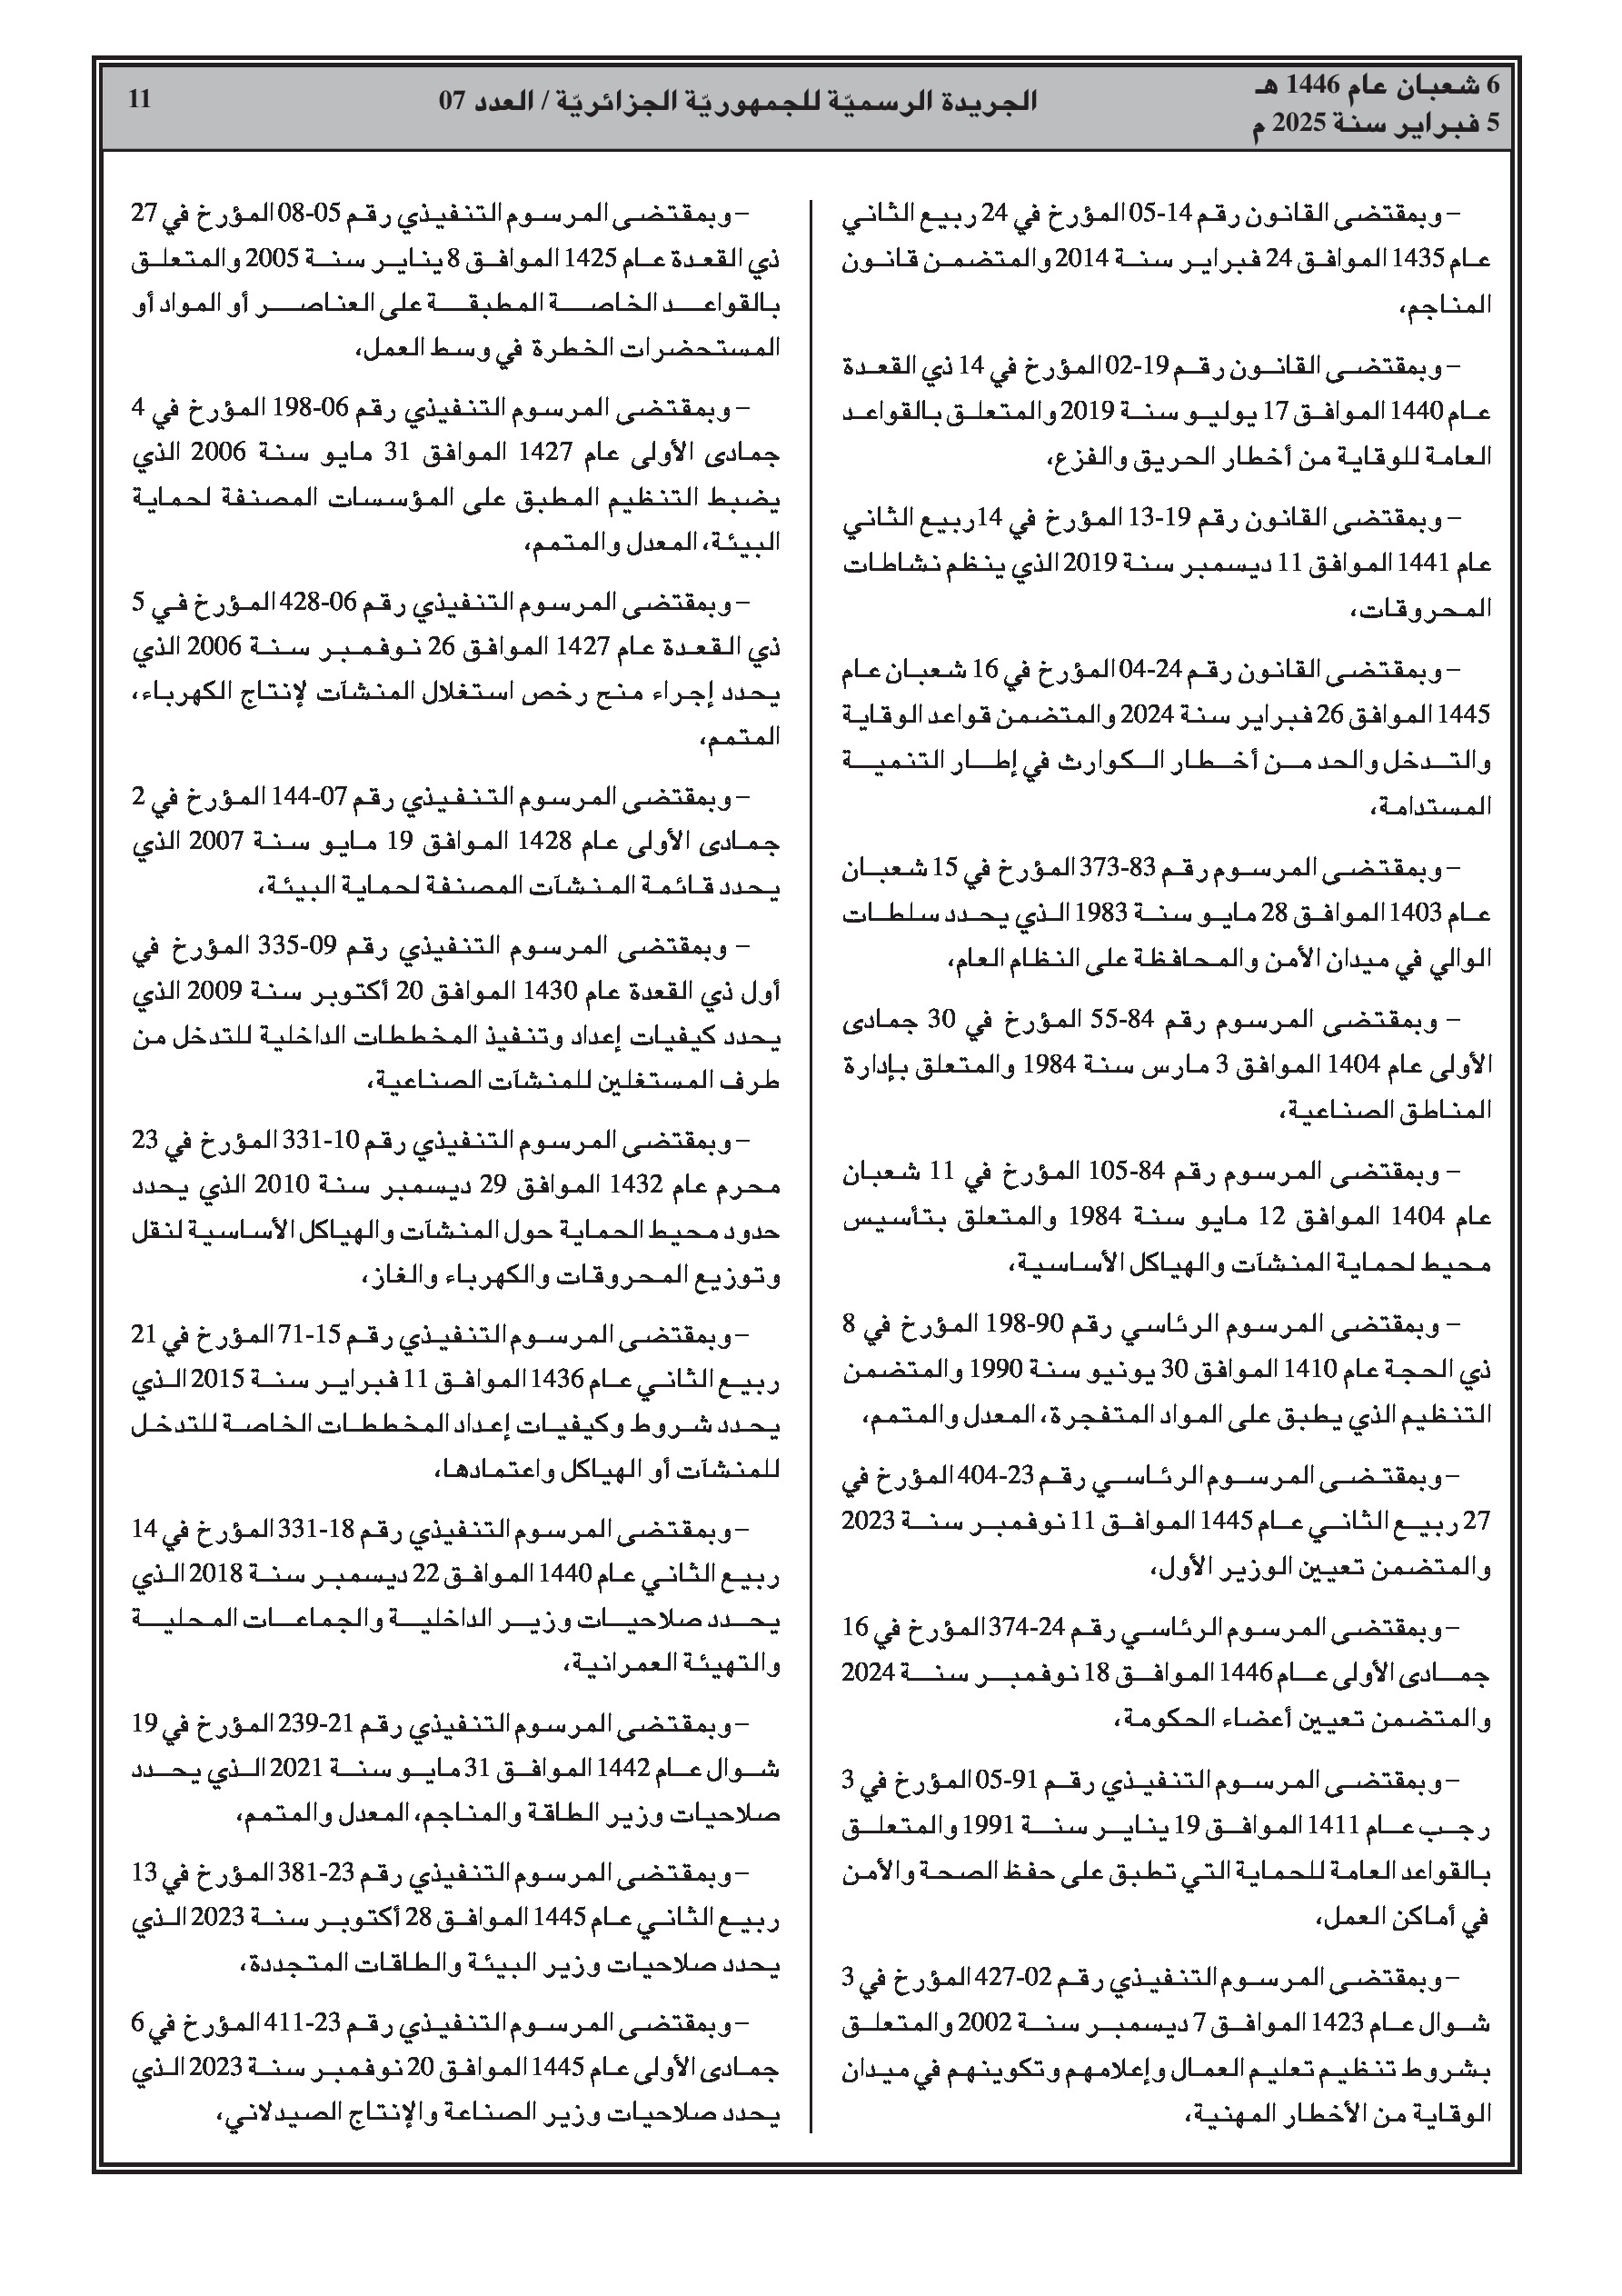 6 شعبان عام 1446 هـ
5 فبراير سنة 2025 م
الجريدة الرسميّة للجمهوريّة الجزائريّة / العدد 07
11
– وبمقتضى القانون رقم 14-05 المؤرخ في 24 ربيع الثاني
عام 1435 الموافق 24 فبراير سنة 2014 والمتضمن قانون
المناجم،
– وبمقتضى القانون رقم 19-02 المؤرخ في 14 ذي القعدة
عام 1440 الموافق 17 يوليو سنة 2019 والمتعلق بالقواعد
العامة للوقاية من أخطار الحريق والفزع،
– وبمقتضى القانون رقم 19-13 المؤرخ في 14 ربيع الثاني
عام 1441 الموافق 11 ديسمبر سنة 2019 الذي ينظم نشاطات
المحروقات،
– وبمقتضى القانون رقم 24-04 المؤرخ في 16 شعبان عام
1445 الموافق 26 فبراير سنة 2024 والمتضمن قواعد الوقاية
والتدخل والحد من أخطار الكوارث في إطار التنمية
المستدامة،
– وبمقتضى المرسوم رقم 83-373 المؤرخ في 15 شعبان
عام 1403 الموافق 28 مايو سنة 1983 الذي يحدد سلطات
الوالي في ميدان الأمن والمحافظة على النظام العام،
– وبمقتضى المرسوم رقم 84-55 المؤرخ في 30 جمادى
الأولى عام 1404 الموافق 3 مارس سنة 1984 والمتعلق بإدارة
المناطق الصناعية،
– وبمقتضى المرسوم رقم 84-105 المؤرخ في 11 شعبان
عام 1404 الموافق 12 مايو سنة 1984 والمتعلق بتأسيس
محيط لحماية المنشآت والهياكل الأساسية،
– وبمقتضى المرسوم الرئاسي رقم 90-198 المؤرخ في 8
ذي الحجة عام 1410 الموافق 30 يونيو سنة 1990 والمتضمن
التنظيم الذي يطبق على المواد المتفجرة، المعدل والمتمم،
– وبمقتضى المرسوم الرئاسي رقم 23-404 المؤرخ في
27 ربيع الثاني عام 1445 الموافق 11 نوفمبر سنة 2023
والمتضمن تعيين الوزير الأول،
– وبمقتضى المرسوم الرئاسي رقم 24-374 المؤرخ في 16
جمادى الأولى عام 1446 الموافق 18 نوفمبر سنة 2024
والمتضمن تعيين أعضاء الحكومة،
– وبمقتضى المرسوم التنفيذي رقم 91-05 المؤرخ في 3
رجب عام 1411 الموافق 19 يناير سنة 1991 والمتعلق
بالقواعد العامة للحماية التي تطبق على حفظ الصحة والأمن
في أماكن العمل،
– وبمقتضى المرسوم التنفيذي رقم 02-427 المؤرخ في 3
شوال عام 1423 الموافق 7 ديسمبر سنة 2002 والمتعلق
بشروط تنظيم تعليم العمال وإعلامهم وتكوينهم في ميدان
الوقاية من الأخطار المهنية،
– وبمقتضى المرسوم التنفيذي رقم 05-08 المؤرخ في 27
ذي القعدة عام 1425 الموافق 8 يناير سنة 2005 والمتعلق
بالقواعد الخاصة المطبقة على العناصر أو المواد أو
المستحضرات الخطرة في وسط العمل،
– وبمقتضى المرسوم التنفيذي رقم 06-198 المؤرخ في 4
جمادى الأولى عام 1427 الموافق 31 مايو سنة 2006 الذي
يضبط التنظيم المطبق على المؤسسات المصنفة لحماية
البيئة، المعدل والمتمم،
– وبمقتضى المرسوم التنفيذي رقم 06-428 المؤرخ في 5
ذي القعدة عام 1427 الموافق 26 نوفمبر سنة 2006 الذي
يحدد إجراء منح رخص استغلال المنشآت لإنتاج الكهرباء،
المتمم،
– وبمقتضى المرسوم التنفيذي رقم 07-144 المؤرخ في 2
جمادى الأولى عام 1428 الموافق 19 مايو سنة 2007 الذي
يحدد قائمة المنشآت المصنفة لحماية البيئة،
– وبمقتضى المرسوم التنفيذي رقم 09-335 المؤرخ في
أول ذي القعدة عام 1430 الموافق 20 أكتوبر سنة 2009 الذي
يحدد كيفيات إعداد وتنفيذ المخططات الداخلية للتدخل من
طرف المستغلين للمنشآت الصناعية،
– وبمقتضى المرسوم التنفيذي رقم 10-331 المؤرخ في 23
محرم عام 1432 الموافق 29 ديسمبر سنة 2010 الذي يحدد
حدود محيط الحماية حول المنشآت والهياكل الأساسية لنقل
وتوزيع المحروقات والكهرباء والغاز،
– وبمقتضى المرسوم التنفيذي رقم 15-71 المؤرخ في 21
ربيع الثاني عام 1436 الموافق 11 فبراير سنة 2015 الذي
يحدد شروط وكيفيات إعداد المخططات الخاصة للتدخل
للمنشآت أو الهياكل واعتمادها،
– وبمقتضى المرسوم التنفيذي رقم 18-331 المؤرخ في 14
ربيع الثاني عام 1440 الموافق 22 ديسمبر سنة 2018 الذي
يحدد صلاحيات وزير الداخلية والجماعات المحلية
والتهيئة العمرانية،
– وبمقتضى المرسوم التنفيذي رقم 21-239 المؤرخ في 19
شوال عام 1442 الموافق 31 مايو سنة 2021 الذي يحدد
صلاحيات وزير الطاقة والمناجم، المعدل والمتمم،
– وبمقتضى المرسوم التنفيذي رقم 23-381 المؤرخ في 13
ربيع الثاني عام 1445 الموافق 28 أكتوبر سنة 2023 الذي
يحدد صلاحيات وزير البيئة والطاقات المتجددة،
– وبمقتضى المرسوم التنفيذي رقم 23-411 المؤرخ في 6
جمادى الأولى عام 1445 الموافق 20 نوفمبر سنة 2023 الذي
يحدد صلاحيات وزير الصناعة والإنتاج الصيدلاني،